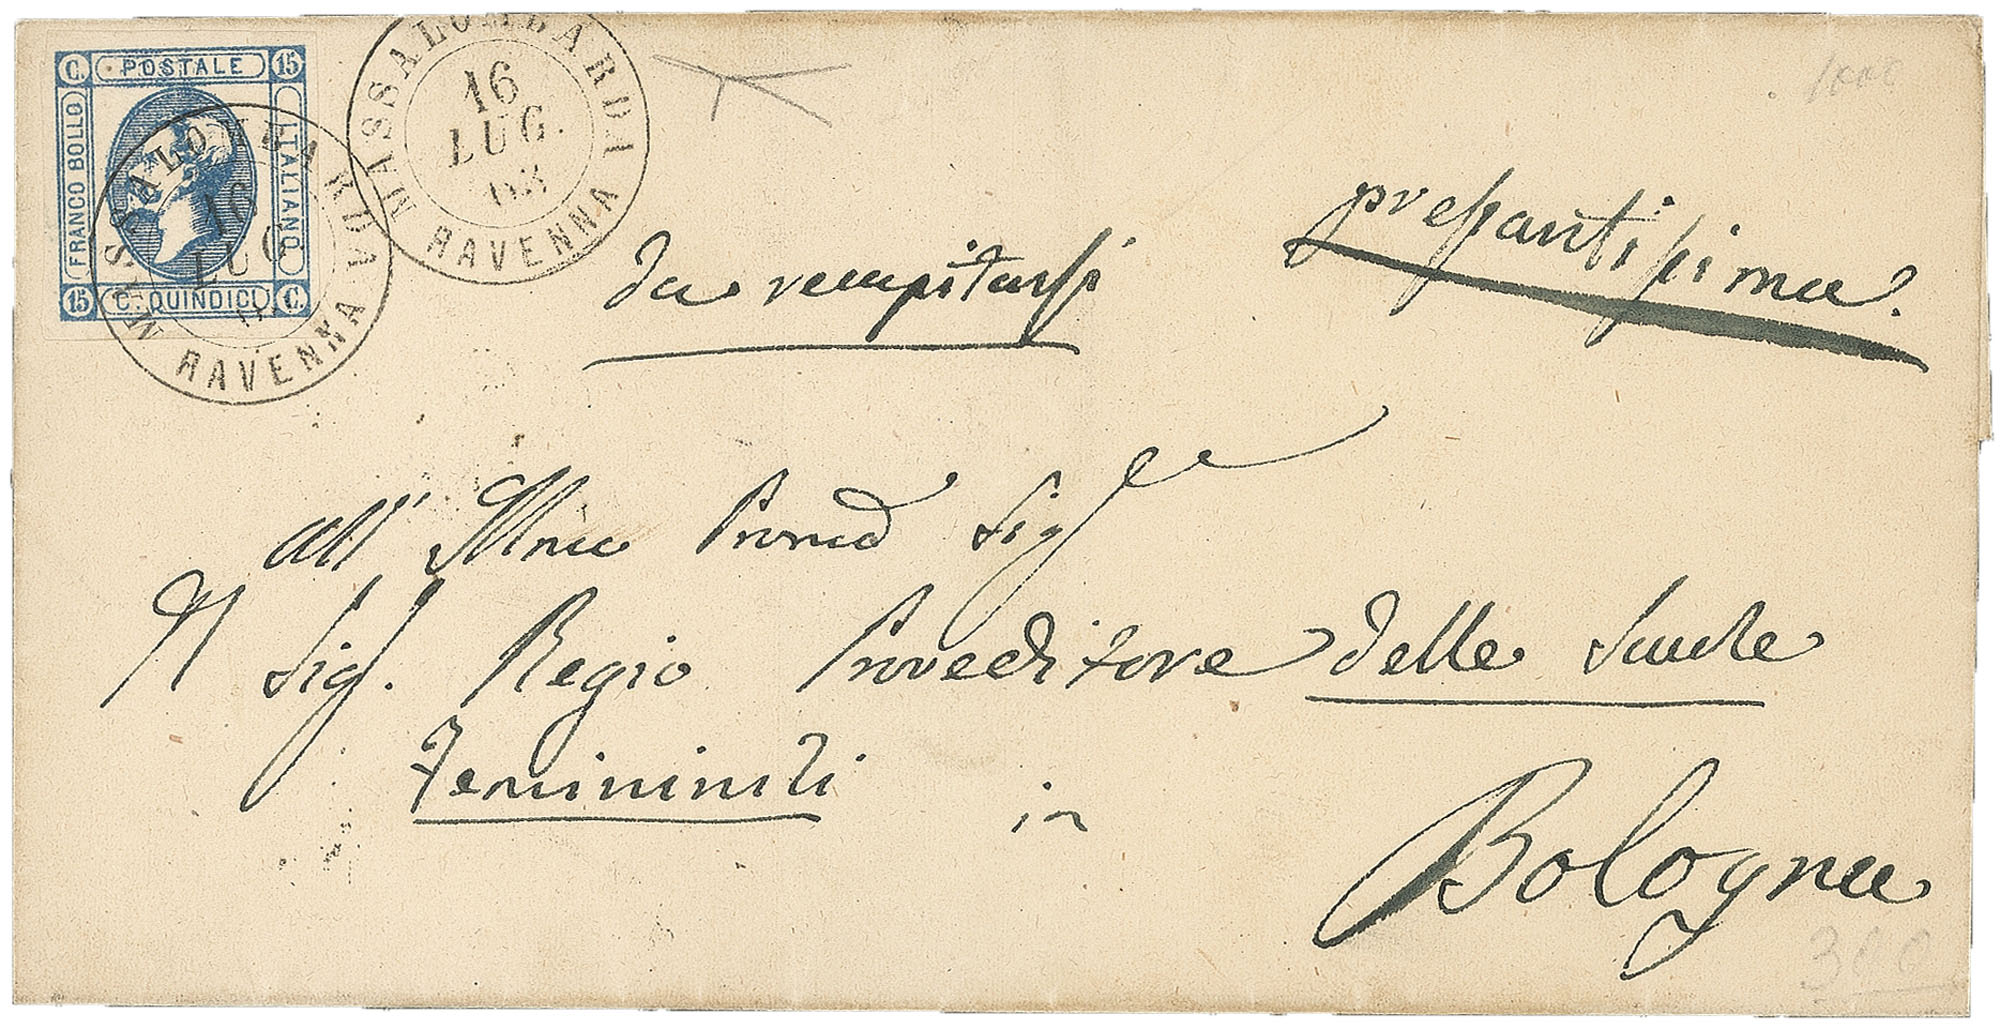 C. POSTALE 15
FRANCO BOLLO
ITALIANO
15 C. QUINDICI C.
MASSALOMBARDA
16
LUG
RAVENNA
MASSALOMBARDA
16
LUG.
63
RAVENNA
pressantissima
da recapitarsi
all' Illma Proned Sigle
Al Sig. Regio Proveditore delle Scuole
Feminili in
Bologna
300